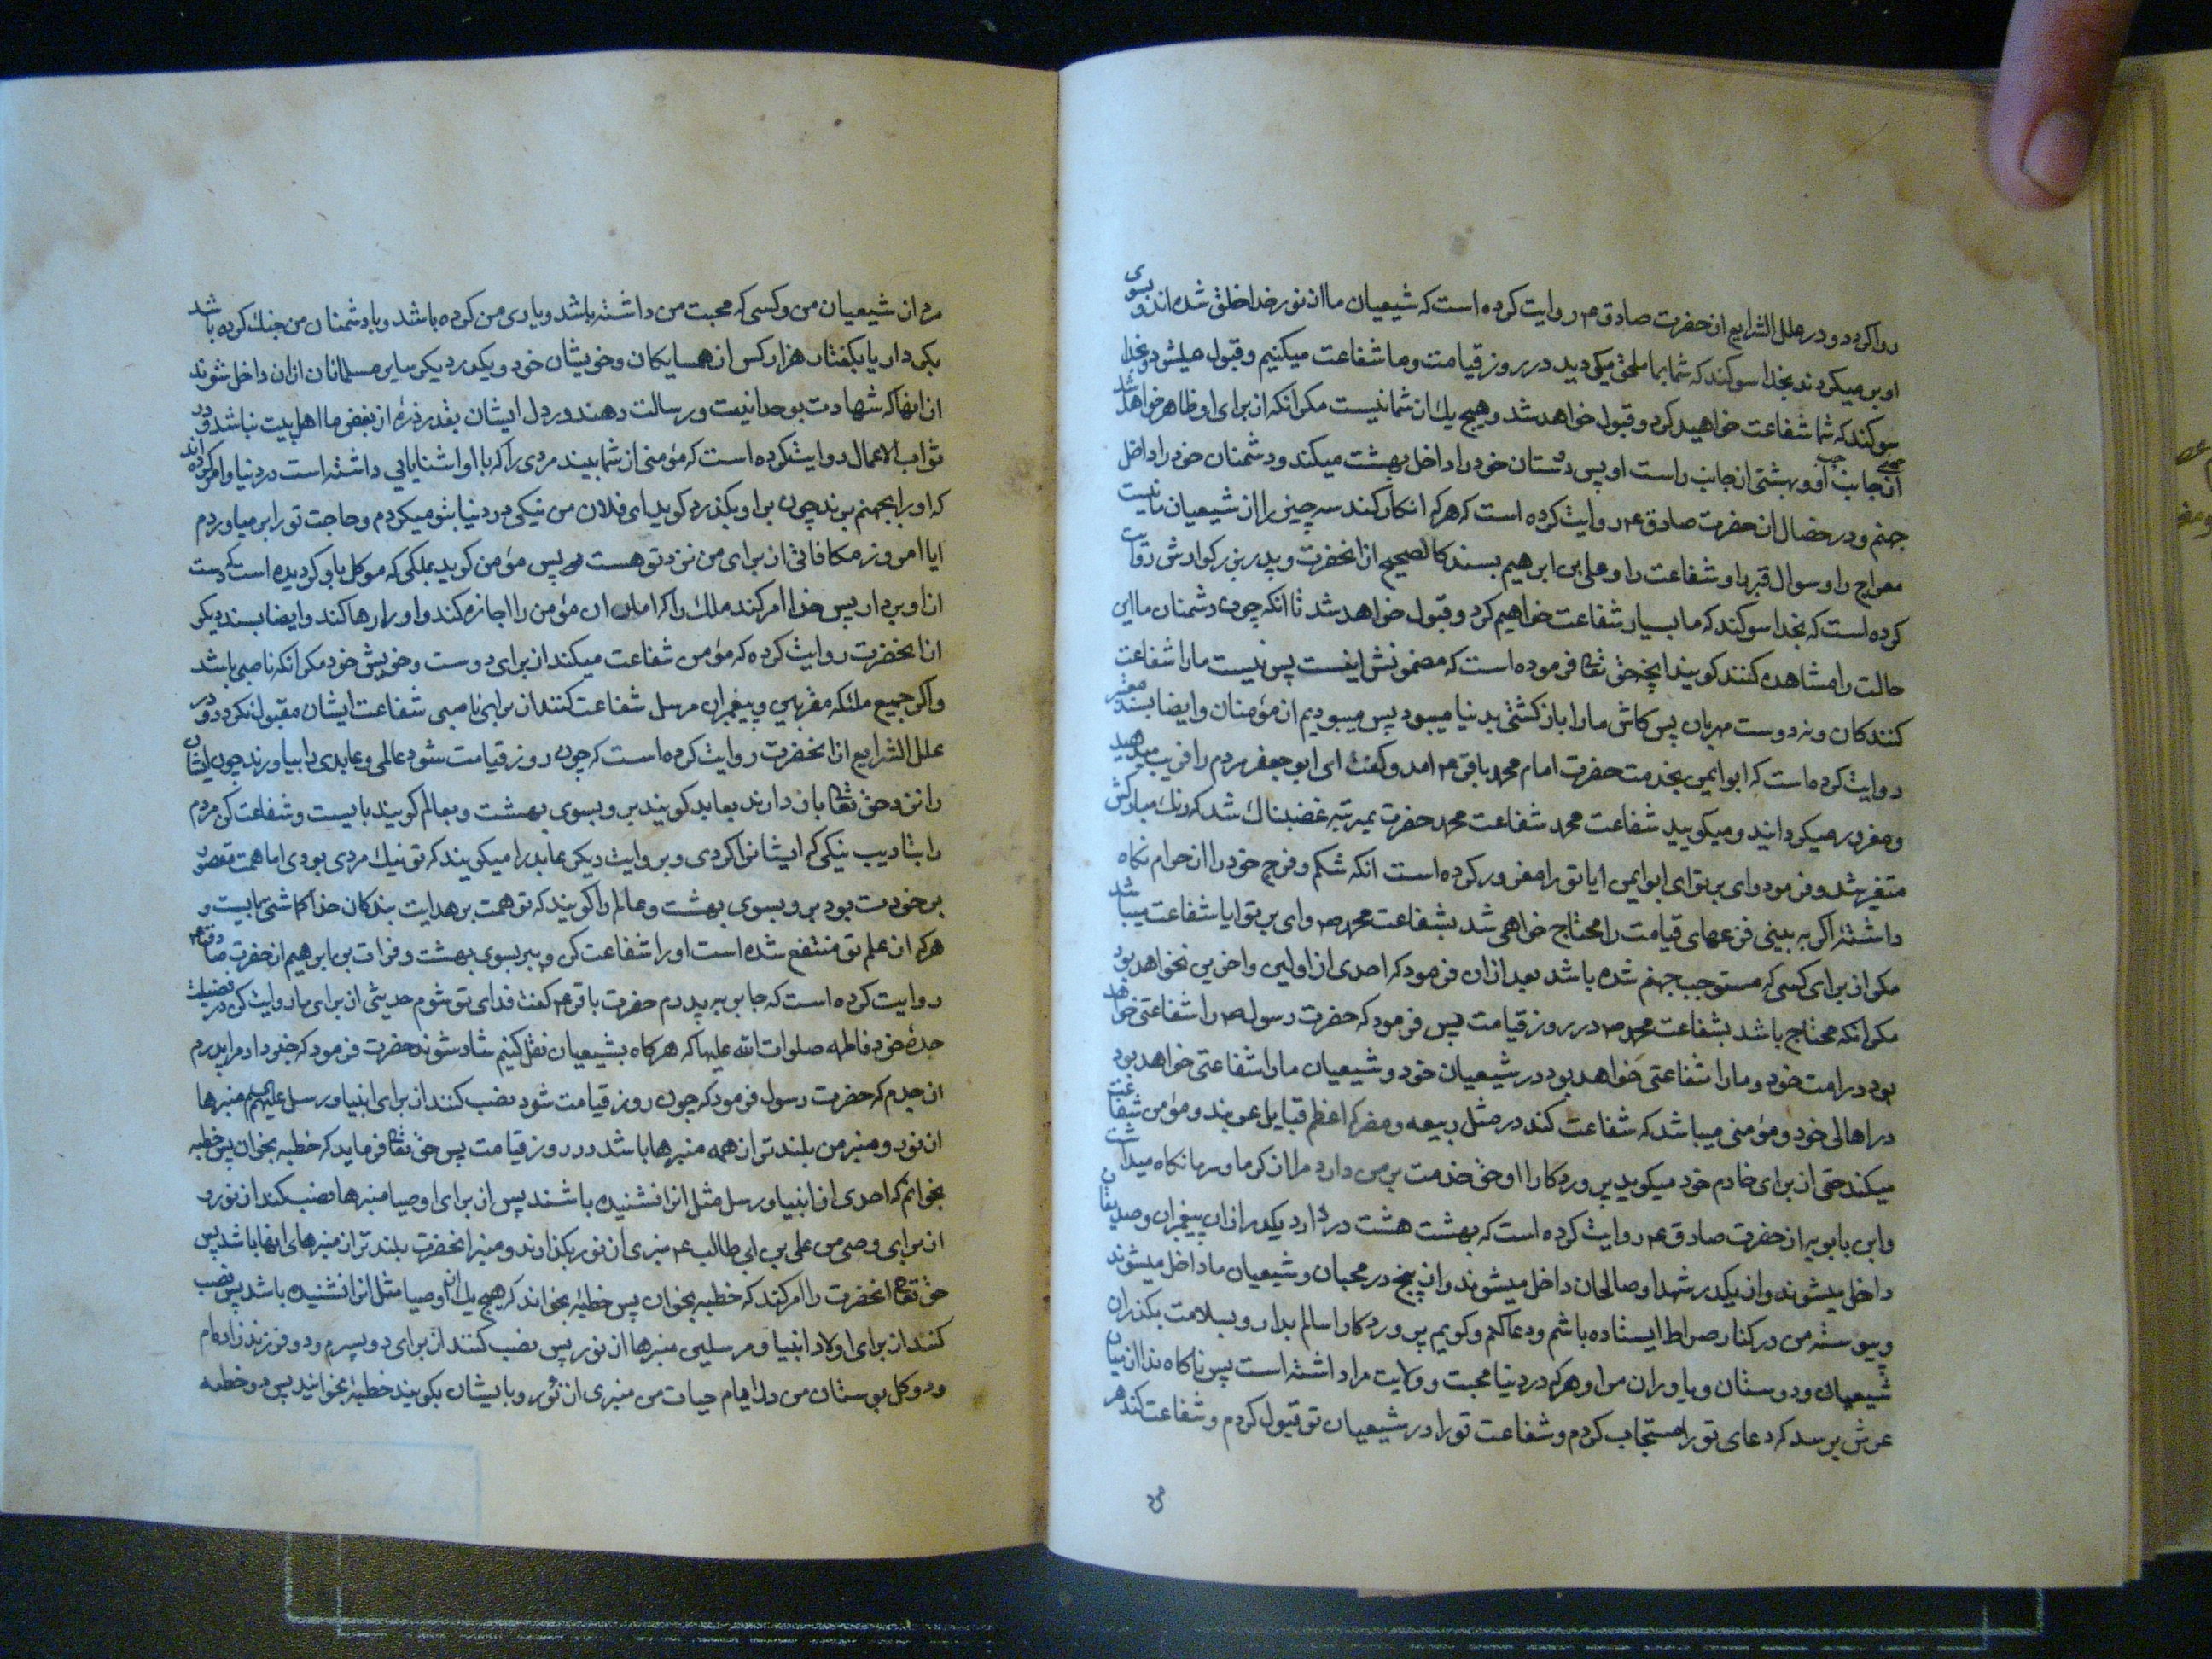 روا کردد و در علل الشرایع از حضرت صادق ع روایت کرده است که شیعیان ما از نور خدا خلق شده اند و بسوی
او بر میکردند بخدا سوکند که شما بما ملحق میکردید در روز قیامت و ما شفاعت میکنیم و قبول میشود و بخدا
سوکند که شما شفاعت خواهید کرد و قبول خواهد شد و هیچ یك از شما نیست مکر انکه از برای او ظاهر خواهد شد
جهنمی از جانب چپ او و بهشتی از جانب راست او پس دوستان خود را داخل بهشت میکند و دشمنان خود را داخل
جهنم و در خصال از حضرت صادق ع روایت کرده است که هر که انکار کند سه چیز را از شیعیان ما نیست
معراج را و سوال قبر را و شفاعت را و علی بن ابرهیم بسند کالصحیح از انحضرت و پدر بزرکوارش روایت
کرده است که بخدا سوکند که ما بسیار شفاعت خواهیم کرد و قبول خواهد شد تا انکه چون دشمنان ما این
حالت را مشاهده کنند کویند انچه حق تعالی فرموده است که مضمونش اینست پس نیست ما را شفاعت
کنندکان و نه دوست مهربان پس کاش ما را بازکشتی بدنیا میبود پس میبودیم از مؤمنان و ایضا بسند معتبر
روایت کرده است که ابو ایمن بخدمت حضرت امام محمد باقر ع امد و کفت ای ابو جعفر مردم را فریب میدهید
و مغرور میکردانید و میکویید شفاعت محمد شفاعت محمد حضرت بمرتبه غضبناك شد که رنك مبارکش
متغیر شد و فرمود وای بر تو ای ابو ایمن ایا تو را مغرور کرده است انکه شکم و فرج خود را از حرام نکاه
داشتهٔ اکر به بینی فزعهای قیامت را محتاج خواهی شد بشفاعت محمد ص وای بر تو ایا شفاعت میباشد
مکر از برای کسی که مستوجب جهنم شده باشد بعد از ان فرمود که احدی از اولین و اخرین نخواهد بود
مکر انکه محتاج باشد بشفاعت محمد ص در روز قیامت پس فرمود که حضرت رسول ص را شفاعتی خواهد
بود در امت خود و ما را شفاعتی خواهد بود در شیعیان خود و شیعیان ما را شفاعتی خواهد بود
در اهالی خود و مؤمنی میباشد که شفاعت کند در مثل ربیعه و مضر که اعظم قبایل عربند و مؤمن شفاعت
میکند حتی از برای خادم خود میکوید پروردکارا او حق خدمت بر من دارد مرا از کرما و سرما نکاه میداشت
و ابن بابویه از حضرت صادق ع روایت کرده است که بهشت هشت در دارد یکدر از ان پیغمبران و صدیقان
داخل میشوند و از یکدر شهدا و صالحان داخل میشوند و از پنج در محبان و شیعیان ما داخل میشوند
و پیوسته من در کنار صراط ایستاده باشم و دعا کنم و کویم پروردکارا سالم بدار و بسلامت بکذران
شیعیان و دوستان و یاوران مرا و هر که در دنیا محبت و ولایت مرا داشته است پس ناکاه ندا از میان
عرش برسد که دعای تو را مستجاب کردم و شفاعت تو را در شیعیان تو قبول کردم و شفاعت کند هر
مرد
مرد از شیعیان من و کسی که محبت من داشته باشد و یاری من کرده باشد و با دشمنان من جنك کرده باشد
بکردار یا بکفتار هزار کس از همسایکان و خویشان خود و یکدر دیکر سایر مسلمانان از ان داخل شوند
از انها که شهادت بوحدانیت و رسالت دهند و در دل ایشان بقدر ذرهٔ از بغض ما اهل بیت نباشد و در
ثواب الاعمال روایت کرده است که مؤمنی از شما بیند مردی را که با او اشنایایی داشته است در دنیا و امر کرده اند
که او را بجهنم برند چون بر او بکذرد کوید ای فلان من نیکی در دنیا بتو میکردم و حاجت تو را بر میاوردم
ایا امروز مکافاتی از برای من نزد تو هست پس مؤمن کوید بملکی که موکل باو کردیده است که دست
از او بردار پس خدا امر کند ملك را که امان ان مؤمن را اجازه کند و او را رها کند و ایضا بسند دیکر
از انحضرت روایت کرده که مؤمن شفاعت میکند از برای دوست و خویش خود مکر انکه ناصبی باشد
و اکر جمیع ملئکه مقربین و پیغمبران مرسل شفاعت کنند از برای ناصبی شفاعت ایشان مقبول نکردد و در
علل الشرایع از انحضرت روایت کرده است که چون روز قیامت شود عالمی و عابدی را بیاورند چون ایشان
را نزد حق تعالی باز دارند بعابد کویند برو بسوی بهشت و بعالم کویند بایست و شفاعت کن مردم
را بتادیب نیکی که ایشانرا کردی و بروایت دیکر عابد را میکویند که تو نیك مردی بودی اما همتت مقصور
بر خودت بود برو بسوی بهشت و عالم را کویند که تو همت بر هدایت بندکان خدا کماشتی بایست و
هر که از علم تو منتفع شده است او را شفاعت کن و ببر بسوی بهشت و فرات بن ابرهیم از حضرت صادق ع
روایت کرده است که جابر به پدرم حضرت باقر ع کفت فدای تو شوم حدیثی از برای ما روایت کن در فضیلت
جدهٔ خود فاطمه صلوات الله علیها که هرکاه بشیعیان نقل کنیم شاد شوند حضرت فرمود که خبر داد مرا پدرم
از جدم که حضرت رسول فرمود که چون روز قیامت شود نصب کنند از برای انبیا و رسل علیهم السلم منبرها
از نور و منبر من بلندتر از همه منبرها باشد در روز قیامت پس حق تعالی فرماید که خطبه بخوان پس خطبه
بخوانم که احدی از انبیا و رسل مثل انرا نشنیده باشند پس از برای اوصیا منبرها نصب کنند از نور و
از برای وصی من علی بن ابی طالب ع منبری از نور بکذارند و منبر انحضرت بلندتر از منبرهای انها باشد پس
حق تعالی انحضرت را امر کند که خطبه بخوان پس خطبهٔ بخواند که هیچ یك از اوصیا مثل انرا نشنیده باشد پس نصب
کنند از برای اولاد انبیا و مرسلین منبرها از نور پس نصب کنند از برای دو پسرم و دو فرزند زادهام
و دو کل بوستان من در ایام حیات من منبری از نور و بایشان بکویند خطبهٔ بخوانید پس دو خطبه